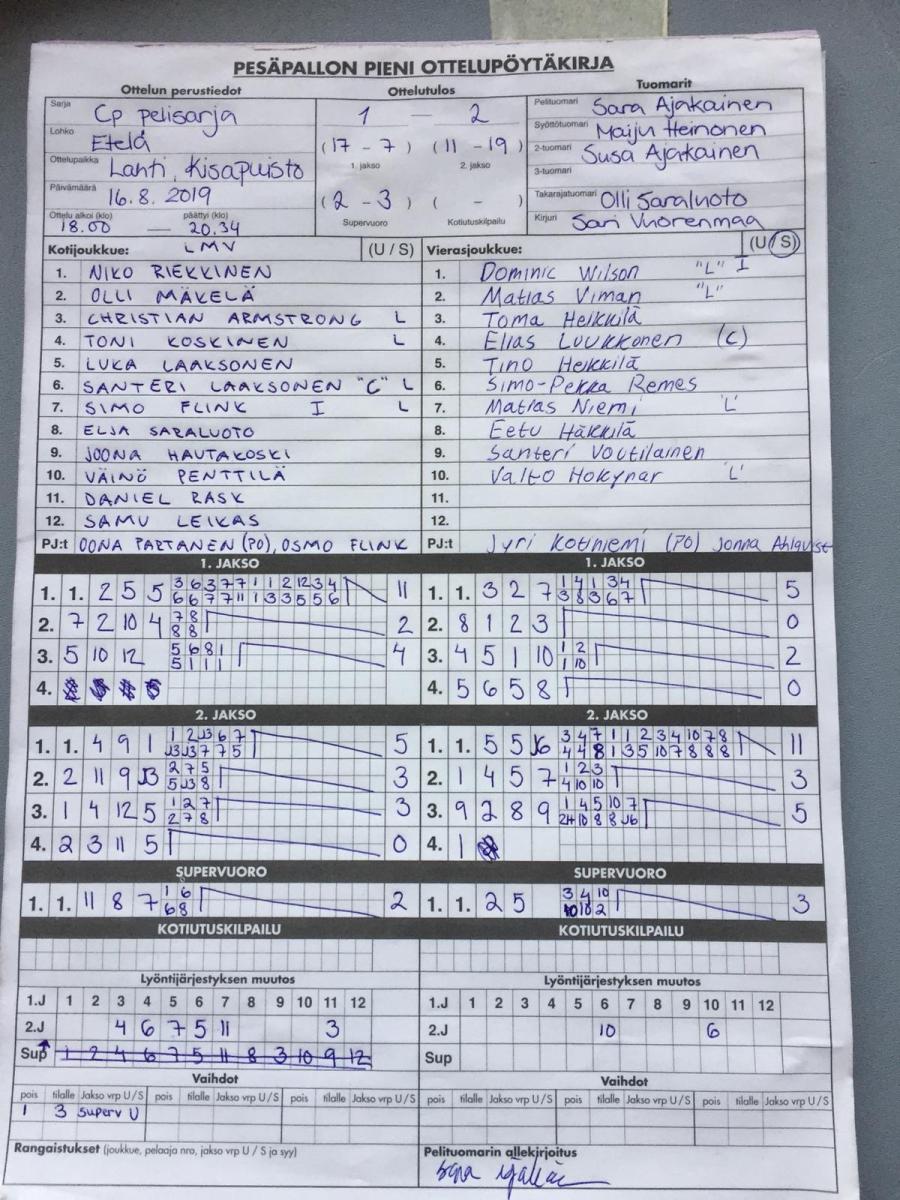 PESÄPALLON PIENI OTTELUPÖYTÄKIRJA
Ottelun perustiedot
Sarja Cp pelisarja
Lohko Etelä
Ottelupaikka Lahti, Kisapuisto
Päivämäärä 16.8.2019
Ottelu alkoi (klo) päättyi (klo)
18.00 — 20.34
Ottelutulos
1 — 2
(17 - 7) (11 - 19)
1. jakso 2. jakso
(2 - 3) ( - )
Supervuoro Kotiutuskilpailu
Tuomarit
Pelituomari Sara Ajakainen
Syöttötuomari Maiju Heinonen
2-tuomari Susa Ajakainen
3-tuomari
Takarajatuomari Olli Saraluoto
Kirjuri Sari Vuorenmaa
Kotijoukkue: LMV (U / S)
1. NIKO RIEKKINEN
2. OLLI MÄKELÄ
3. CHRISTIAN ARMSTRONG L
4. TONI KOSKINEN L
5. LUKA LAAKSONEN
6. SANTERI LAAKSONEN "C" L
7. SIMO FLINK I L
8. ELJA SARALUOTO
9. JOONA HAUTAKOSKI
10. VÄINÖ PENTTILÄ
11. DANIEL RASK
12. SAMU LEIKAS
PJ:t OONA PARTANEN (PO), OSMO FLINK
Vierasjoukkue: (U / S)
1. Dominic Wilson "L" I
2. Matias Viman "L"
3. Toma Heikkilä
4. Elias Luukkonen (C)
5. Tino Heikkilä
6. Simo-Pekka Remes
7. Matias Niemi 'L'
8. Eetu Häkkilä
9. Santeri Voutilainen
10. Valto Hokynar 'L'
11.
12.
PJ:t Jyri Kotiniemi (PO) Jonna Ahlqvist
1. JAKSO
1. 1. 2 5 5 3 6 3 7 7 1 1 2 12 3 4 11
6 6 7 7 11 1 3 3 5 5 6
2. 7 2 10 4 7 8 2
8 8
3. 5 10 12 5 6 8 1 4
5 1 1 1
4.
1. JAKSO
1. 1. 3 2 7 1 4 1 3 4 5
3 8 3 6 7
2. 8 1 2 3 0
3. 4 5 1 10 1 2 2
1 10
4. 5 6 5 8 0
2. JAKSO
1. 1. 4 9 1 1 2 J3 6 7 5
J3 J3 7 7 5
2. 2 11 9 J3 2 7 5 3
5 J3 8
3. 1 4 12 5 1 2 7 3
2 7 8
4. 2 3 11 5 0
2. JAKSO
1. 1. 5 5 J6 3 4 7 1 1 2 3 4 10 7 8 11
4 4 8 1 3 5 10 7 8 8 8
2. 1 4 5 7 1 2 3 3
4 10 10
3. 9 2 8 9 1 4 5 10 7 5
10 8 8 J6
4. 1
SUPERVUORO
1. 1. 11 8 7 1 6 2
6 8
SUPERVUORO
1. 1. 2 5 3 4 10 3
10 10 2
KOTIUTUSKILPAILU
KOTIUTUSKILPAILU
Lyöntijärjestyksen muutos
1.J 1 2 3 4 5 6 7 8 9 10 11 12
2.J 4 6 7 5 11 3
Sup 1 2 4 6 7 5 11 8 3 10 9 12
Lyöntijärjestyksen muutos
1.J 1 2 3 4 5 6 7 8 9 10 11 12
2.J 10 6
Sup
Vaihdot
pois tilalle Jakso vrp U/S pois tilalle Jakso vrp U/S pois tilalle Jakso vrp U/S
1 3 superv U
Vaihdot
pois tilalle Jakso vrp U/S pois tilalle Jakso vrp U/S pois tilalle Jakso vrp U/S
Rangaistukset (joukkue, pelaaja nro, jakso vrp U / S ja syy)
Pelituomarin allekirjoitus